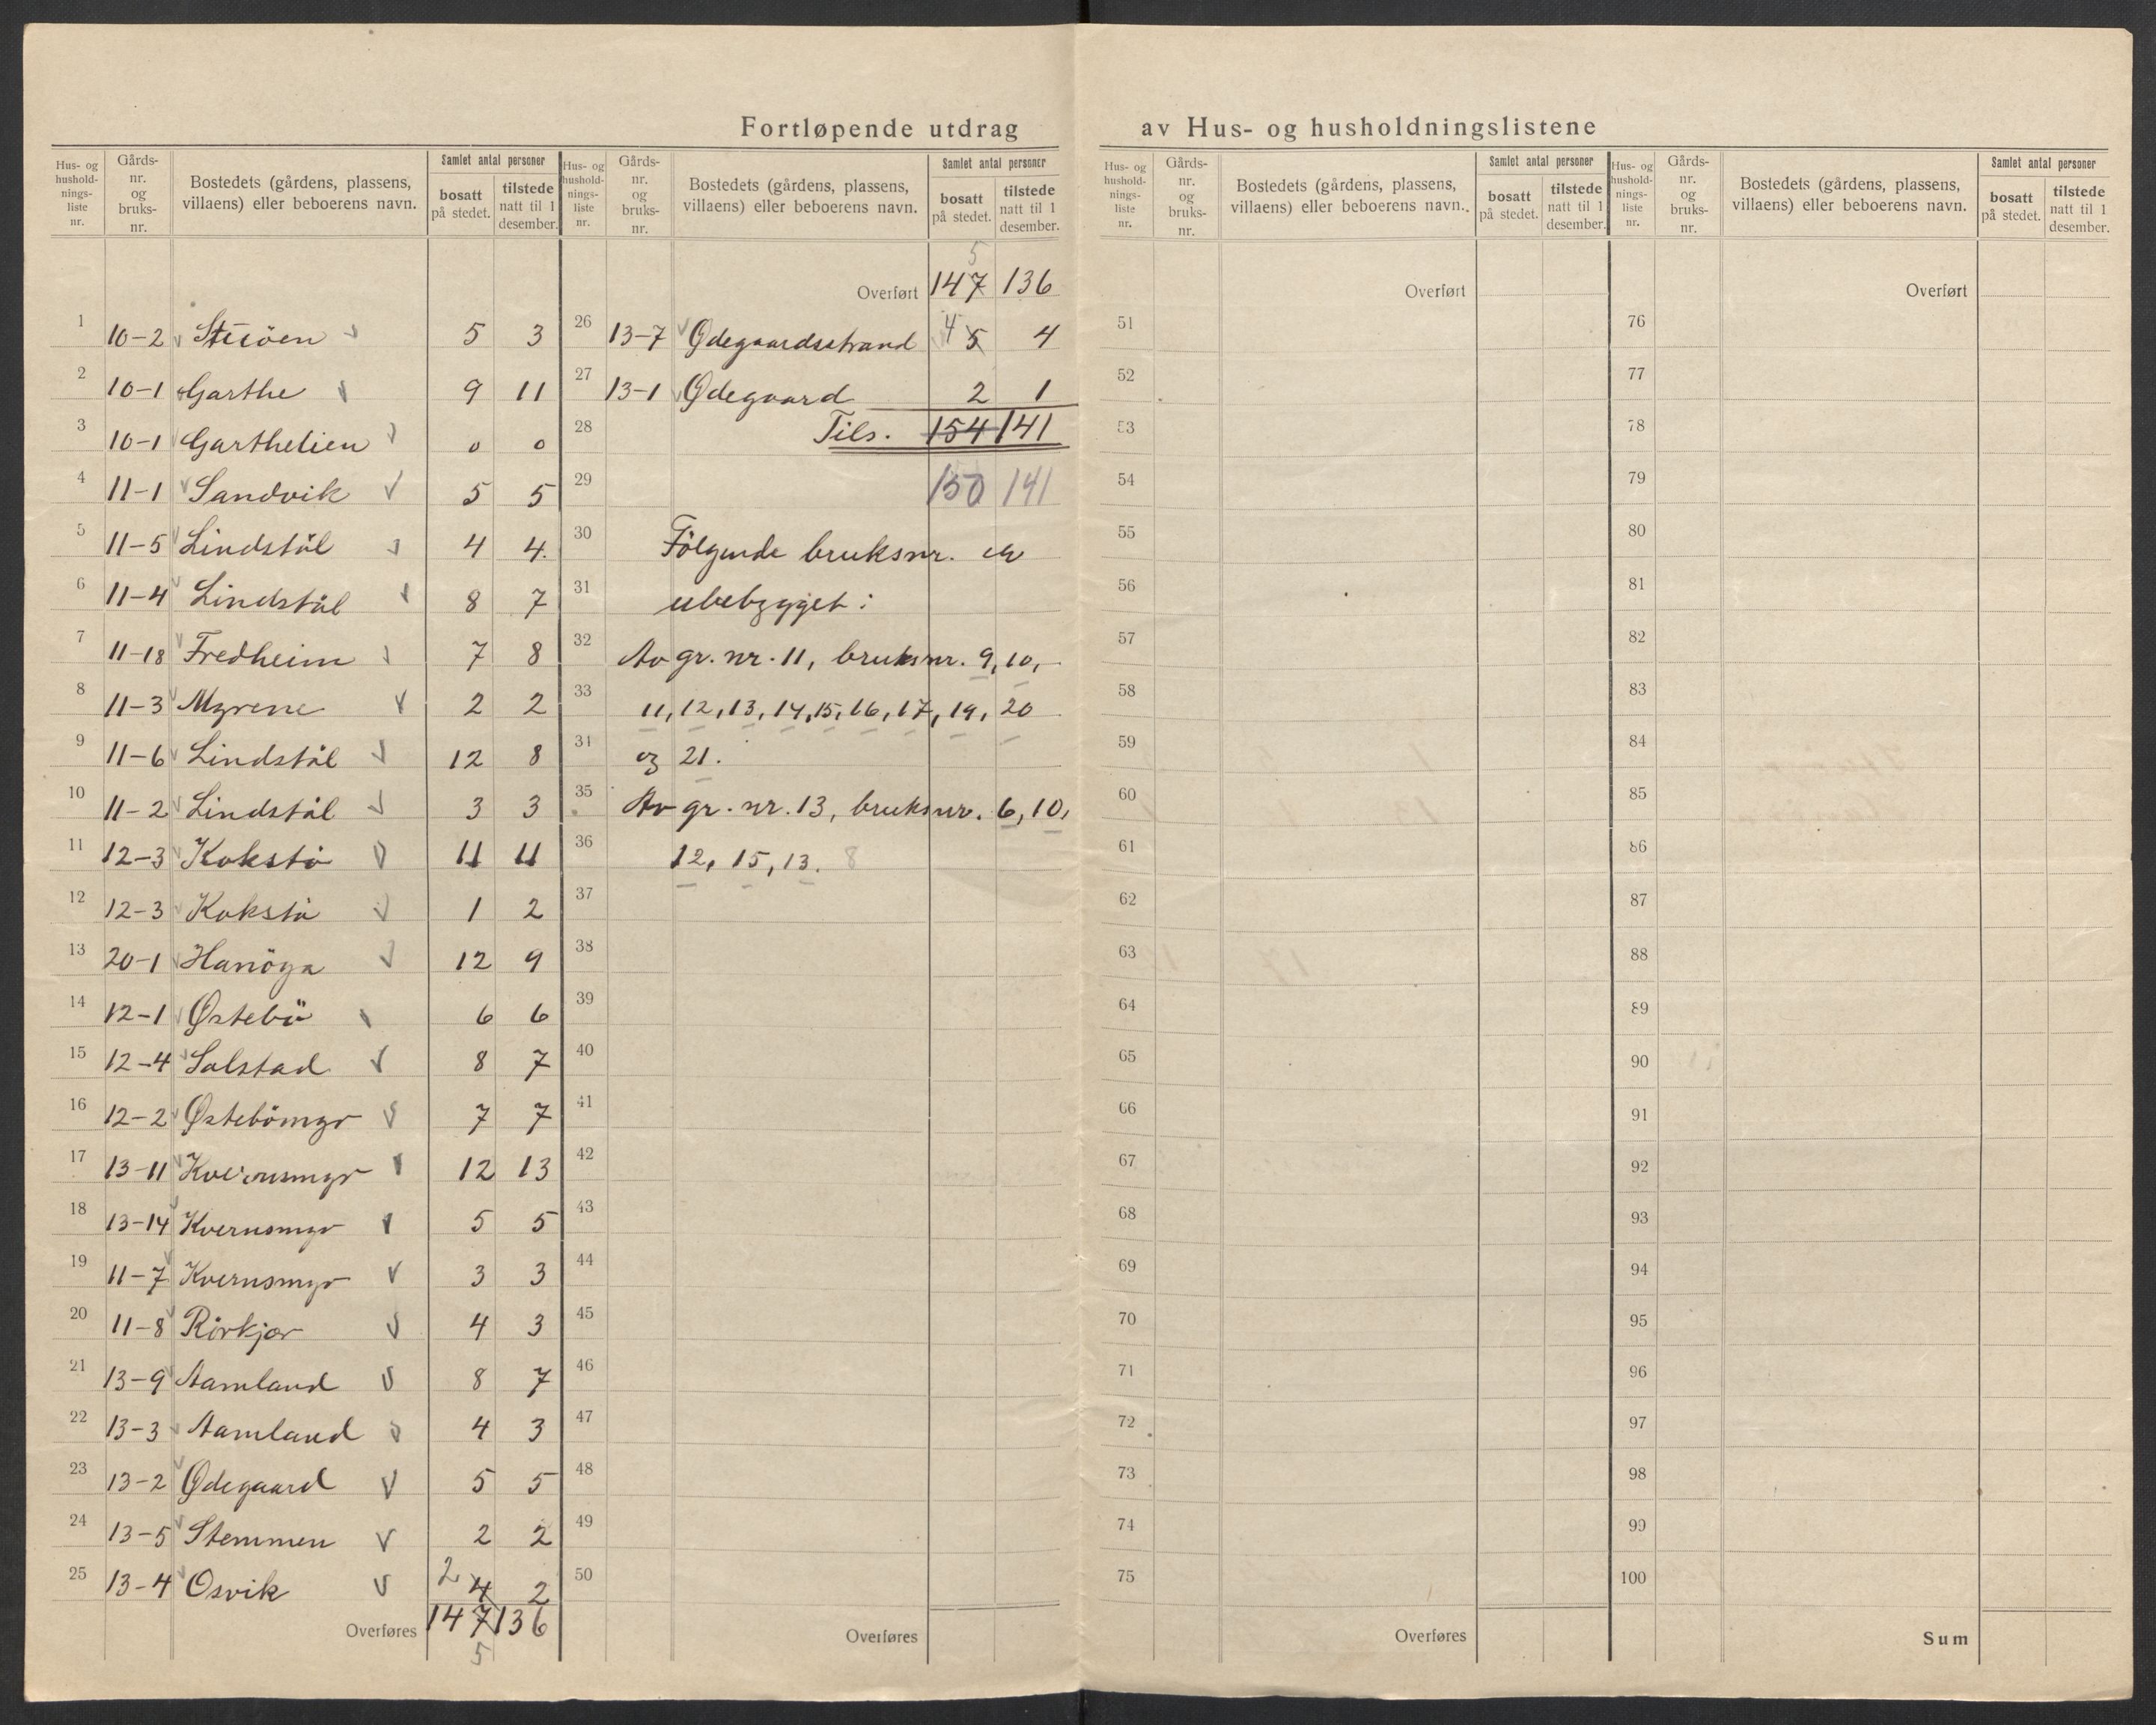 Fortløpende utdrag av Hus- og husholdningslistene
Hus- og hushold- nings- liste nr. | Gårds- nr. og bruks- nr. | Bostedets (gårdens, plassens, villaens) eller beboerens navn. | Samlet antal personer | bosatt på stedet. | tilstede natt til 1 desember.
1 10-2 5 3
2 10-1 Garthe 9 11
3 10-1 Garthelien 0 0
4 11-1 Sandvik 5 5
5 11-5 Lindstöl 4 4.
6 11-4 Lindstöl 8 7
7 11-18 Fredheim 7 8
8 11-3 Myrene 2 2
9 11-6 Lindstöl 12 8
10 11-2 Lindstöl 3 3
11 12-3 Kokstö 11 11
12 12-3 Kokstö 1 2
13 20-1 Hanöya 12 9
14 12-1 Østebö 6 6
15 12-4 Solstad 8 7
16 12-2 Østebömyr 7 7
17 13-11 Kvernsmyr 12 13
18 13-14 Kvernsmyr 5 5
19 11-7 Kvernsmyr 3 3
20 11-8 Rörkjær 4 3
21 13-9 Aamland 8 7
22 13-3 Aamland 4 3
23 13-2 Ødegaard 5 5
24 13-5 Stemmen 2 2
25 13-4 Osvik 2 4 2
Overføres 147 136
5
Hus- og hushold- nings- liste nr. | Gårds- nr. og bruks- nr. | Bostedets (gårdens, plassens, villaens) eller beboerens navn. | Samlet antal personer | bosatt på stedet. | tilstede natt til 1 desember.
5
Overført 147 136
26 13-7 Ødegaardsstrand 4 5 4
27 13-1 Ødegaard 2 1
28 Tils. 154 141
29 150 141
30 Fölgende bruksnr. er
31 ubebygget:
32 Av gr. nr. 11, bruksnr. 9, 10,
33 11, 12, 13, 14, 15, 16, 17, 19, 20
34 og 21.
35 Av gr. nr. 13, bruksnr. 6, 10,
36 12, 15, 13. 8
37
38
39
40
41
42
43
44
45
46
47
48
49
50
Overføres
Hus- og hushold- nings- liste nr. | Gårds- nr. og bruks- nr. | Bostedets (gårdens, plassens, villaens) eller beboerens navn. | Samlet antal personer | bosatt på stedet. | tilstede natt til 1 desember.
Overført
51
52
53
54
55
56
57
58
59
60
61
62
63
64
65
66
67
68
69
70
71
72
73
74
75
Overføres
Hus- og hushold- nings- liste nr. | Gårds- nr. og bruks- nr. | Bostedets (gårdens, plassens, villaens) eller beboerens navn. | Samlet antal personer | bosatt på stedet. | tilstede natt til 1 desember.
Overført
76
77
78
79
80
81
82
83
84
85
86
87
88
89
90
91
92
93
94
95
96
97
98
99
100
Sum